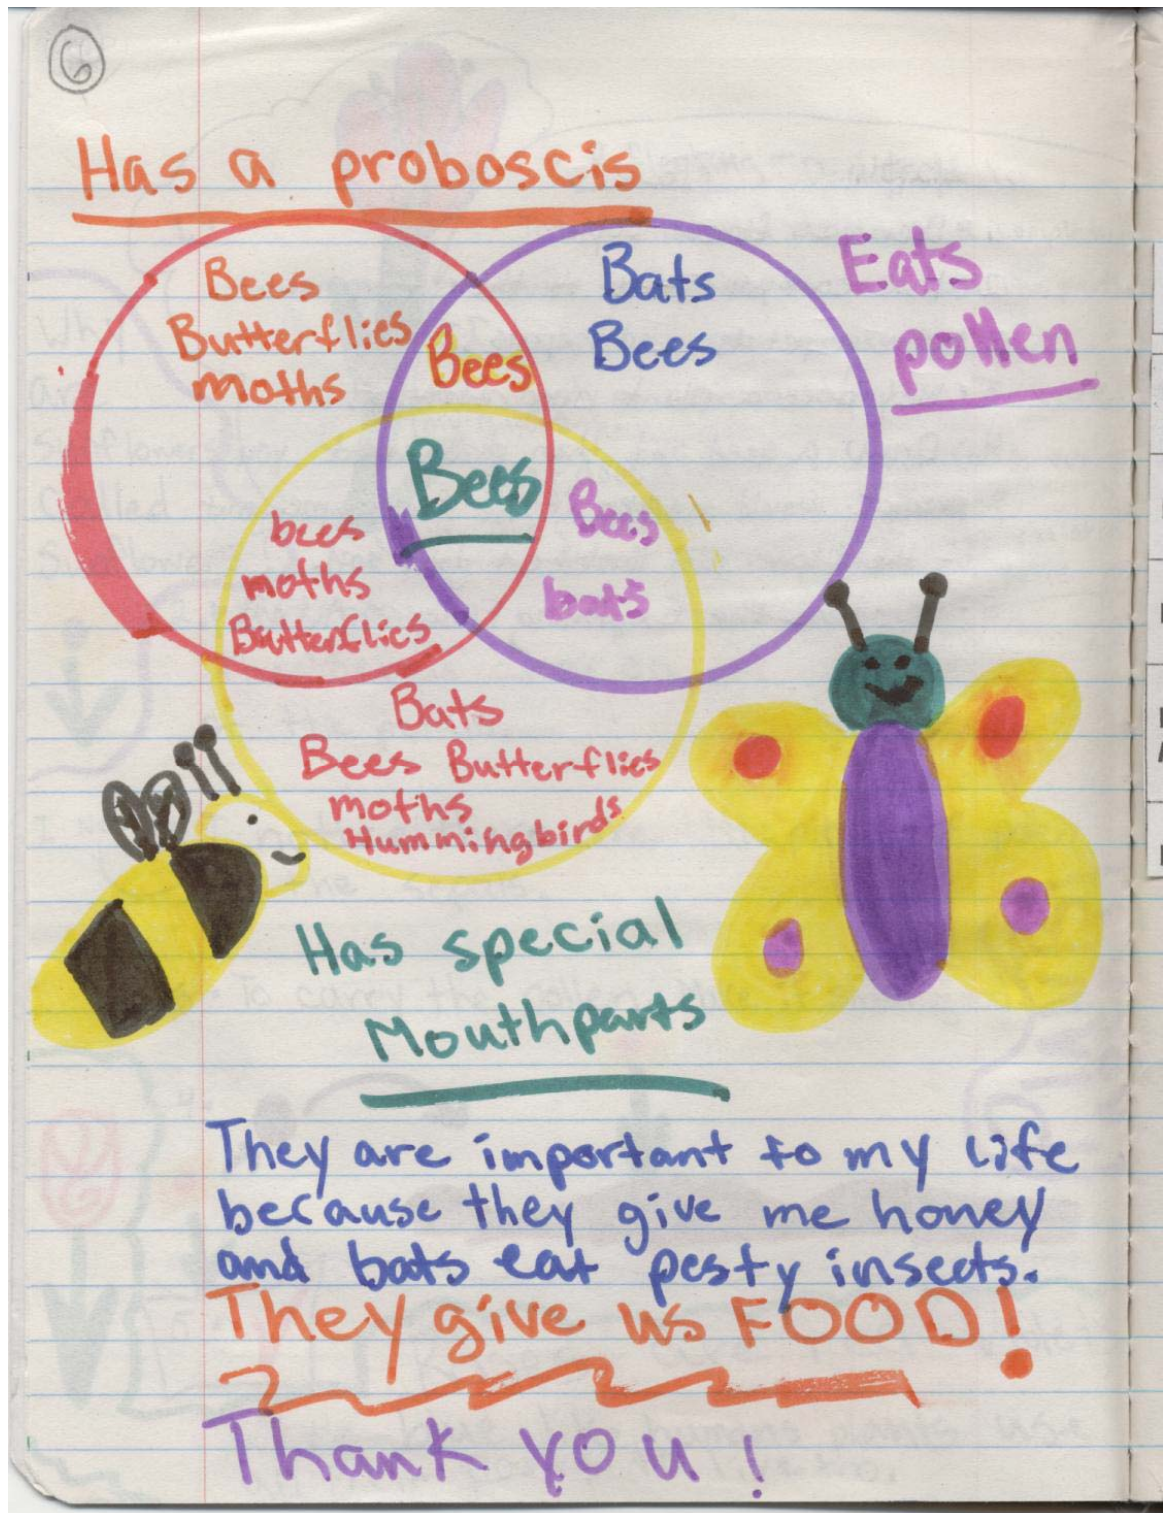 6
Has a proboscis
Bees
Butterflies
moths
Bees
Bats
Bees
Eats
pollen
Bees
bees
moths
Butterflies
Bees
bats
Bats
Bees Butterflies
moths
Hummingbirds
Has special
Mouthparts
They are important to my life
because they give me honey
and bats eat pesty insects.
They give us FOOD!
Thank you!